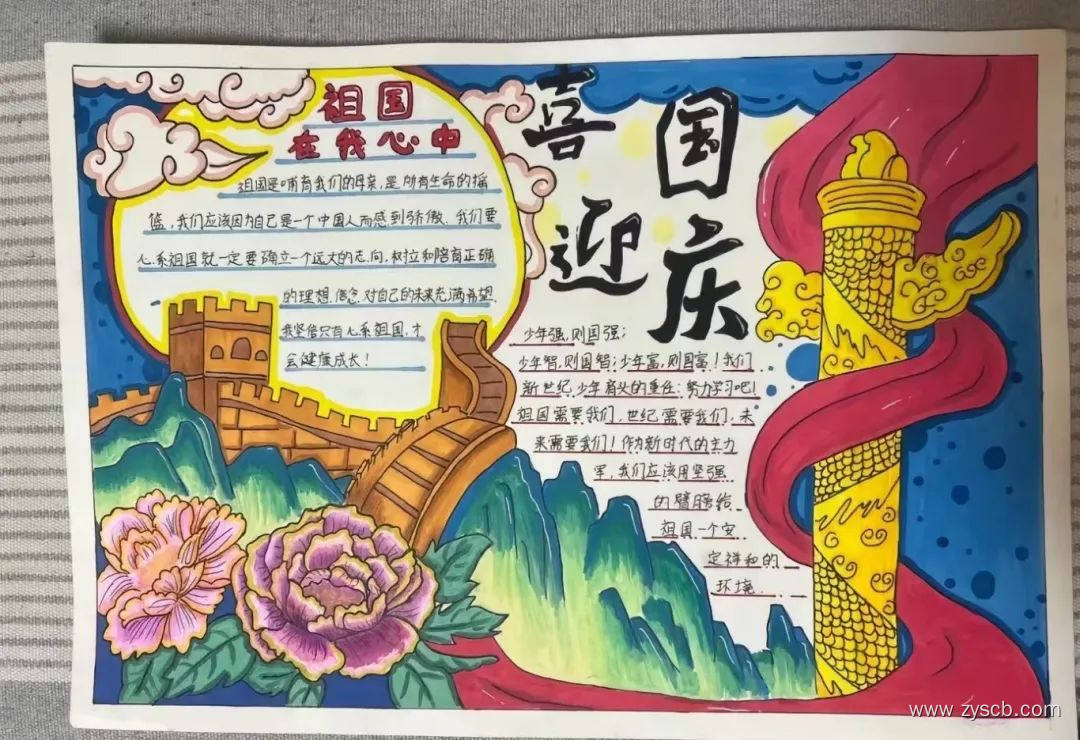 祖国
在我心中
祖国是哺育我们的母亲,是所有生命的摇
篮,我们应该因为自己是一个中国人而感到骄傲、我们要
心系祖国就一定要确立一个远大的志向,树立和陪育正确
的理想、信念、对自己的未来充满希望、
我坚信只有心系祖国,才
会健康成长!
喜迎
国庆
少年强,则国强;
少年智,则国智;少年富,则国富!我们
新世纪少年肩头的重任:努力学习吧!
祖国需要我们,世纪需要我们,未
来需要我们!作为新时代的主力
军,我们应该用坚强
的臂膀给
祖国一个安
定祥和的
环境.
www.zyscb.com